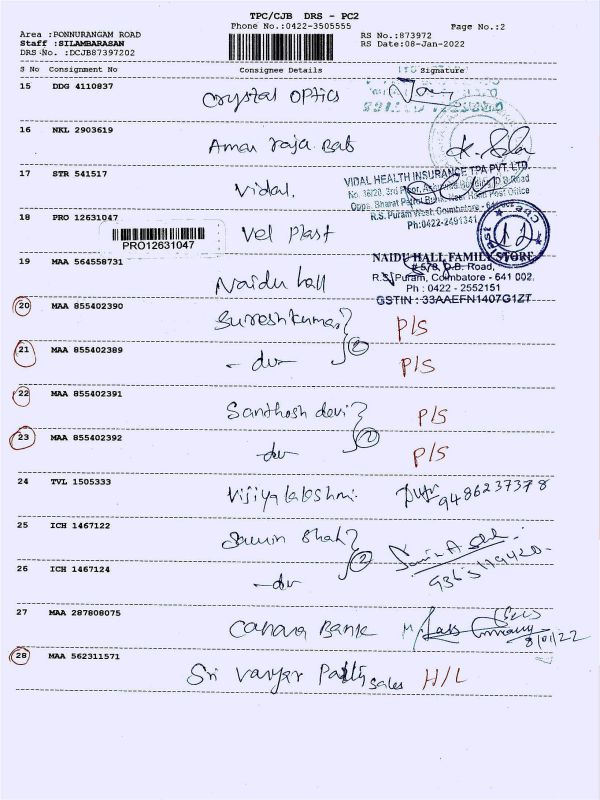 TPC/CJB DRS - PC2
Phone No.:0422-3505555
Page No.:2
Area :PONNURANGAM ROAD
Staff :SILAMBARASAN
DRS No. :DCJB87397202
RS No.:873972
RS Date:08-Jan-2022
S No Consignment No Consignee Details Signature
15 DDG 4110837 Crystal Optics
16 NKL 2903619 Aman raja Bab
17 STR 541517 Vidal.
VIDAL HEALTH INSURANCE TPA PVT. LTD.
No. 16/20, 3rd Floor, Building, D.B.Road
Opps. Bharat Petrol Bunk, Near Head Post Office
R.S. Puram West, Coimbatore - 641 002
Ph:0422-2491341
18 PRO 12631047 Vel Plast
PRO12631047
19 MAA 564558731 Naidu hall
NAIDU HALL FAMILY STORE
# 578, D.B. Road,
R.S. Puram, Coimbatore - 641 002.
Ph : 0422 - 2552151
GSTIN : 33AAEFN1407G1ZT
20 MAA 855402390 Sureshkumar P/S
21 MAA 855402389 - do - 2 P/S
22 MAA 855402391 Santhosh devi P/S
23 MAA 855402392 - do - 2 P/S
24 TVL 1505333 Vijiyalakshmi 9486237378
25 ICH 1467122 Shah
26 ICH 1467124 - do - 2
27 MAA 287808075 Canara Bank 8/01/22
28 MAA 562311571 Sri Sales H/L